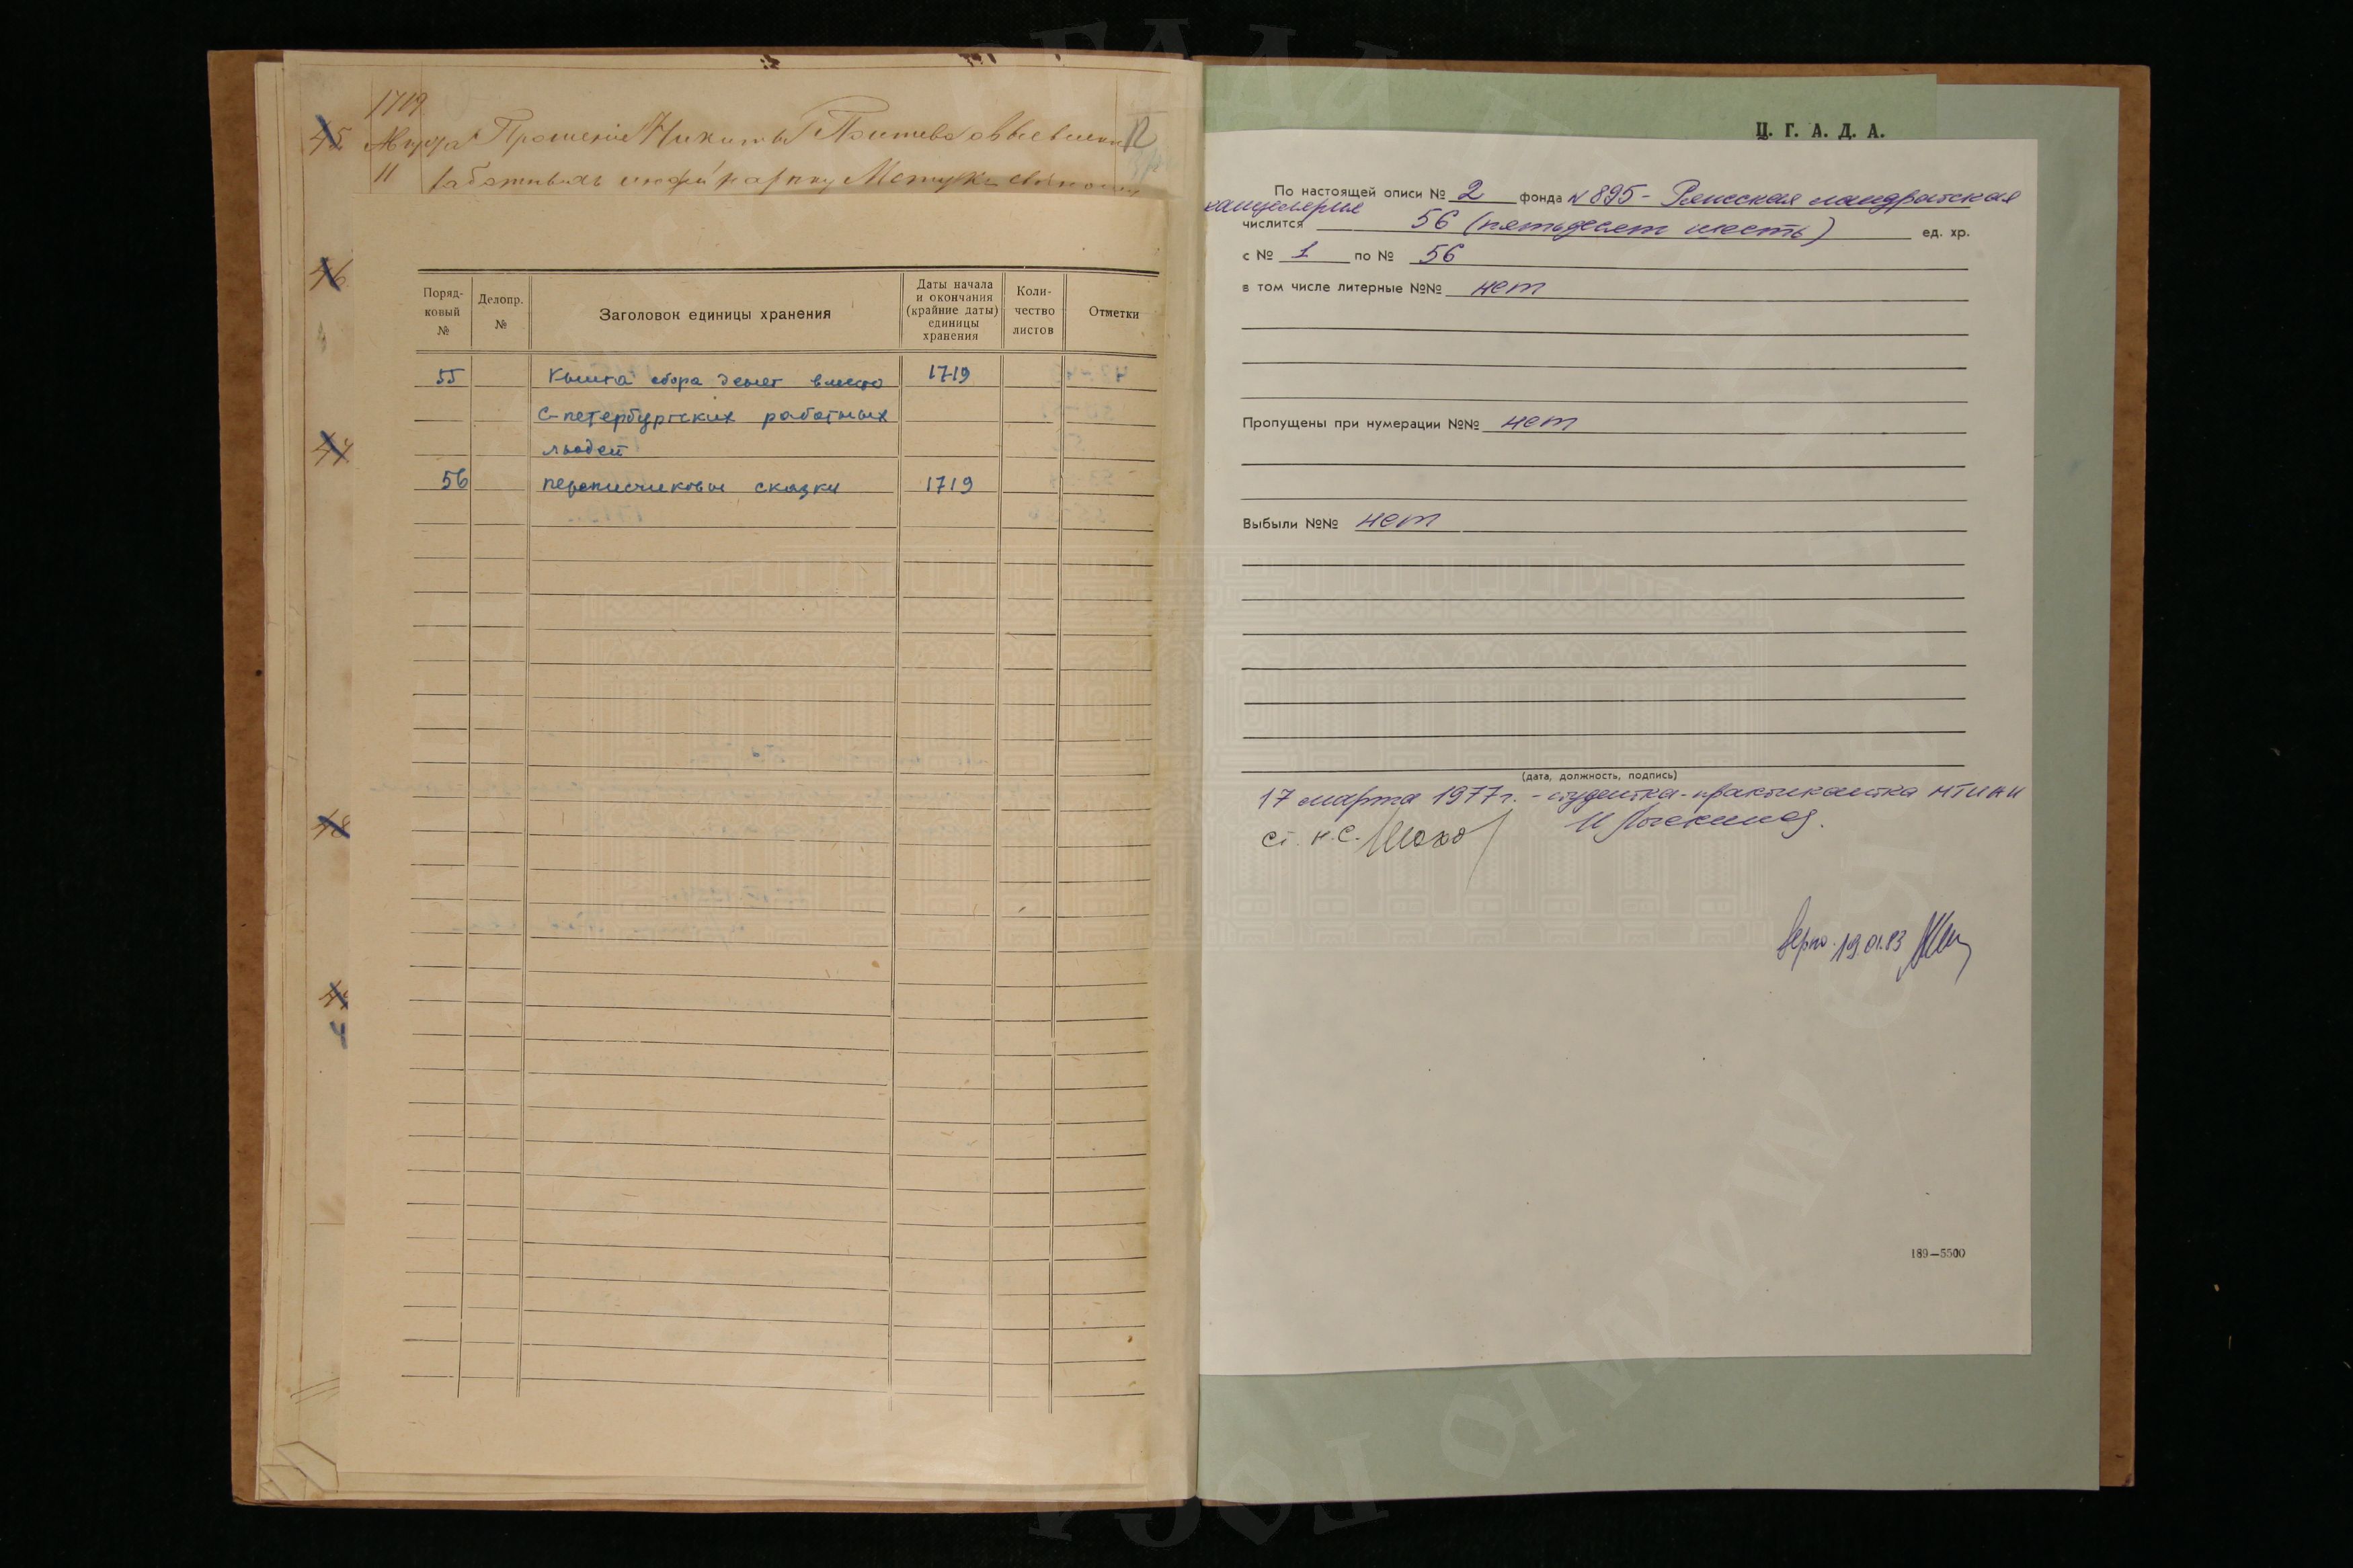 1719
45. Марта Прошеніе Никиты
11
46
47
48
49
Поряд-
ковый
№
Делопр.
№
Заголовок единицы хранения
Даты начала
и окончания
(крайние даты)
единицы
хранения
Коли-
чество
листов
Отметки
55 Книга сбора денег вместо 1719
С-петербургских работных
людей
56 переписчиковы сказки 1719
Ц. Г. А. Д. А.
По настоящей описи № 2 фонда № 895 - Ряжская ландратская
канцелярия
числится 56 (пятьдесят шесть) ед. хр.
с № 1 по № 56
в том числе литерные №№ нет
Пропущены при нумерации №№ нет
Выбыли №№ нет
(дата, должность, подпись)
17 марта 1977 г. - студентка-практикантка МГИАИ
ст. н.с.
Верно 19.01.83
189—5500